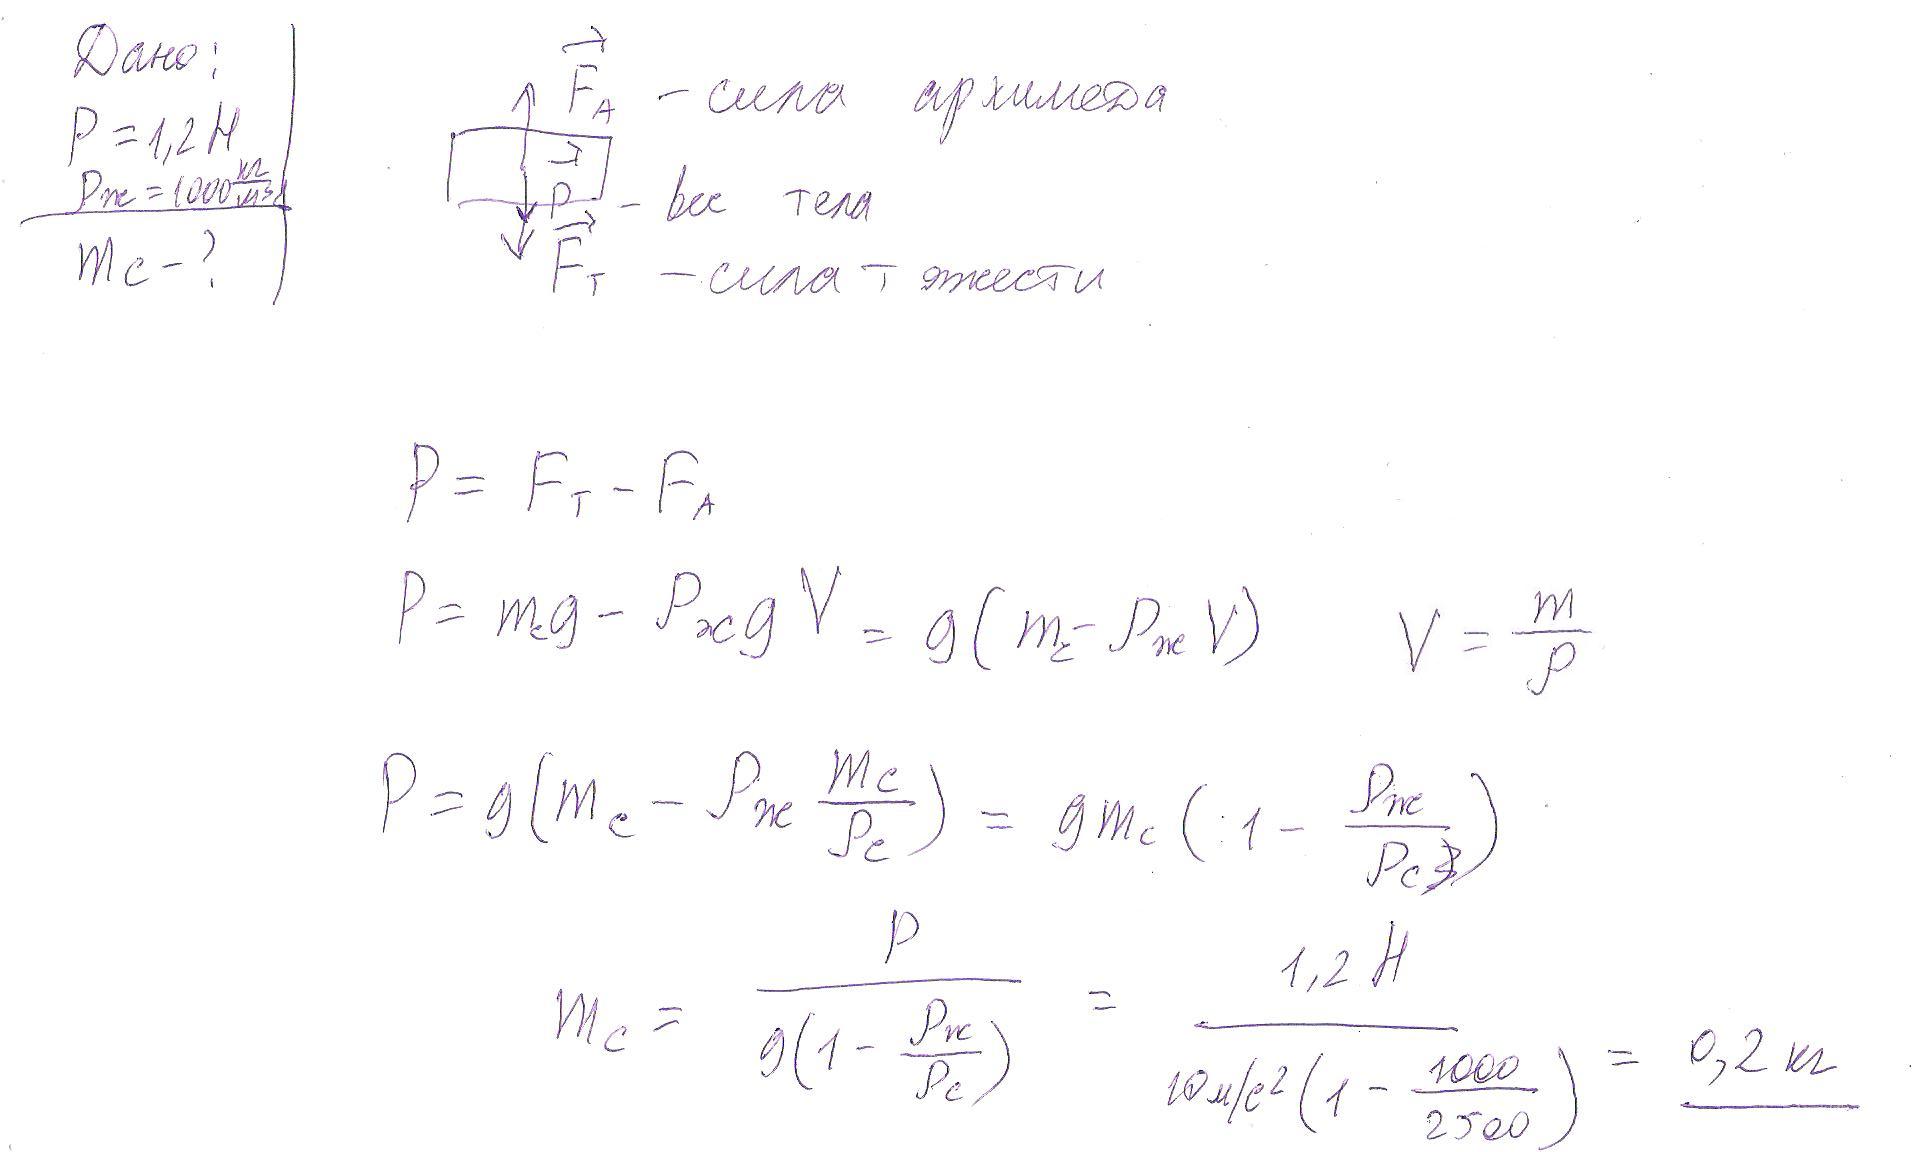 Дано:
P = 1,2 Н
ρж = 1000 кг/м³
mс - ?
F⃗A - сила архимеда
P⃗ - вес тела
F⃗т - сила тяжести
P = Fт - FA
P = mсg - ρжgV = g(mс - ρжV) V = m/ρ
P = g(mс - ρж mс/ρс) = gmс(1 - ρж/ρс)
mс = P/(g(1 - ρж/ρс)) = 1,2 Н/(10 м/с²(1 - 1000/2500)) = 0,2 кг